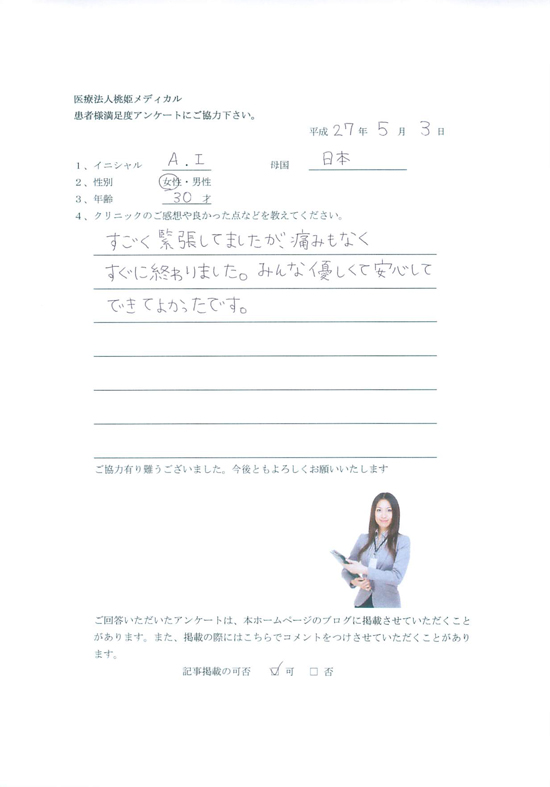 医療法人桃姫メディカル
患者様満足度アンケートにご協力下さい。
平成 27 年 5 月 3 日
1、イニシャル A.I 母国 日本
2、性別 女性・男性
3、年齢 30 才
4、クリニックのご感想や良かった点などを教えてください。
すごく緊張してましたが、痛みもなく
すぐに終わりました。みんな優しくて安心して
できてよかったです。
ご協力有り難うございました。今後ともよろしくお願いいたします
ご回答いただいたアンケートは、本ホームページのブログに掲載させていただくこと
があります。また、掲載の際にはこちらでコメントをつけさせていただくことがあり
ます。
記事掲載の可否 ☑ 可 □ 否